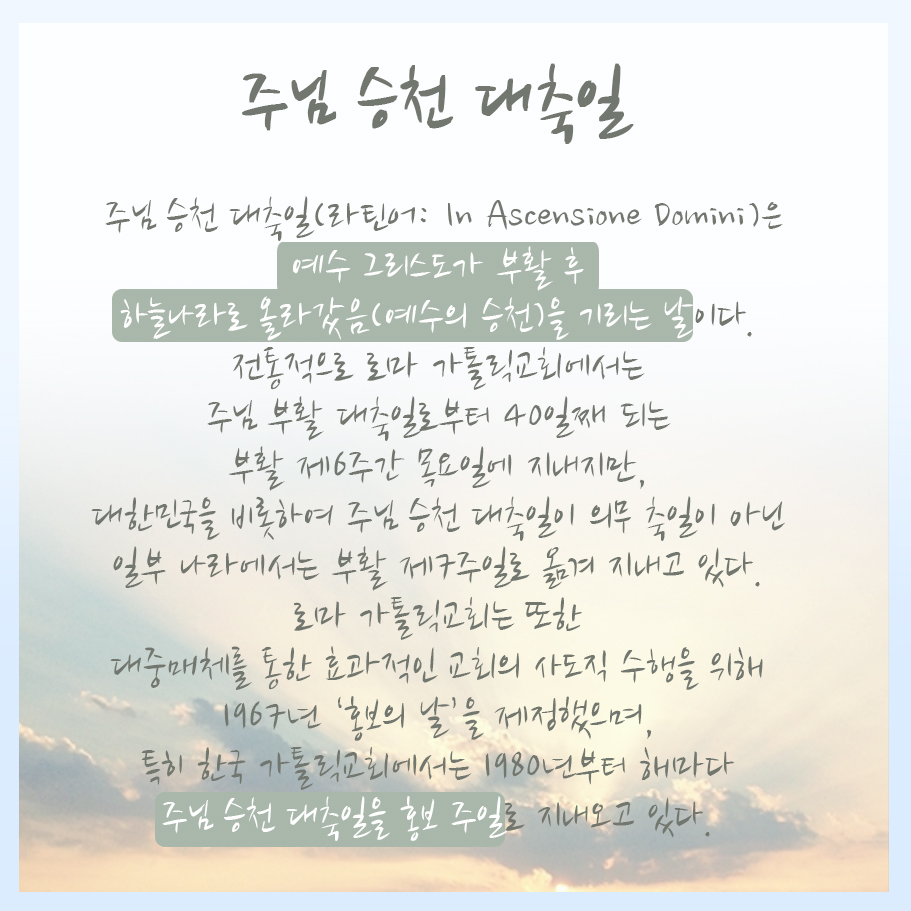 주님 승천 대축일
주님 승천 대축일(라틴어: In Ascensione Domini)은
예수 그리스도가 부활 후
하늘나라로 올라갔음(예수의 승천)을 기리는 날이다.
전통적으로 로마 가톨릭교회에서는
주님 부활 대축일로부터 40일째 되는
부활 제6주간 목요일에 지내지만,
대한민국을 비롯하여 주님 승천 대축일이 의무 축일이 아닌
일부 나라에서는 부활 제7주일로 옮겨 지내고 있다.
로마 가톨릭교회는 또한
대중매체를 통한 효과적인 교회의 사도직 수행을 위해
1967년 ‘홍보의 날’을 제정했으며,
특히 한국 가톨릭교회에서는 1980년부터 해마다
주님 승천 대축일을 홍보 주일로 지내오고 있다.